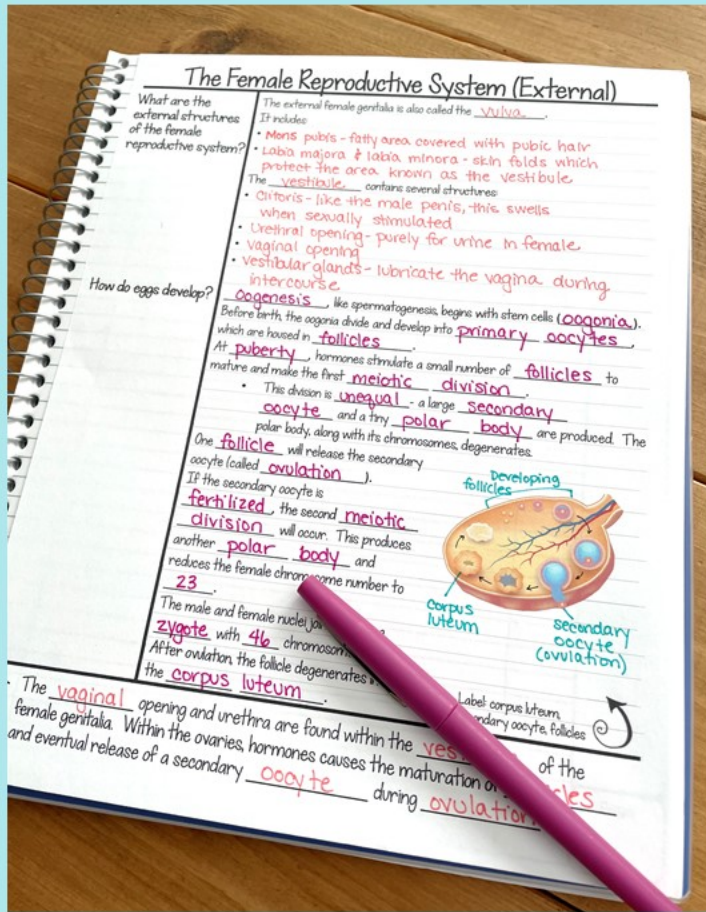 The Female Reproductive System (External)
What are the
external structures
of the female
reproductive system?
The external female genitalia is also called the vulva.
It includes
• Mons pubis - fatty area covered with pubic hair
• Labia majora & labia minora - skin folds which
protect the area known as the vestibule
The vestibule contains several structures
• Clitoris - like the male penis, this swells
when sexually stimulated
• Urethral opening - purely for urine in female
• vaginal opening
• vestibular glands - lubricate the vagina during
intercourse
How do eggs develop?
Oogenesis, like spermatogenesis, begins with stem cells (oogonia).
Before birth, the oogonia divide and develop into primary oocytes,
which are housed in follicles.
At puberty, hormones stimulate a small number of follicles to
mature and make the first meiotic division.
• This division is unequal - a large secondary
oocyte and a tiny polar body are produced. The
polar body, along with its chromosomes, degenerates.
One follicle will release the secondary
oocyte (called ovulation).
If the secondary oocyte is
fertilized, the second meiotic
division will occur. This produces
another polar body and
reduces the female chromosome number to
23.
The male and female nuclei
zygote with 46
After ovulation, the follicle degenerates
the corpus luteum.
Developing
follicles
corpus
luteum
secondary
oocyte
(ovulation)
Label: corpus luteum,
oocyte, follicles
The vaginal opening and urethra are found within the of the
female genitalia. Within the ovaries, hormones causes the maturation
and eventual release of a secondary oocyte during ovulation